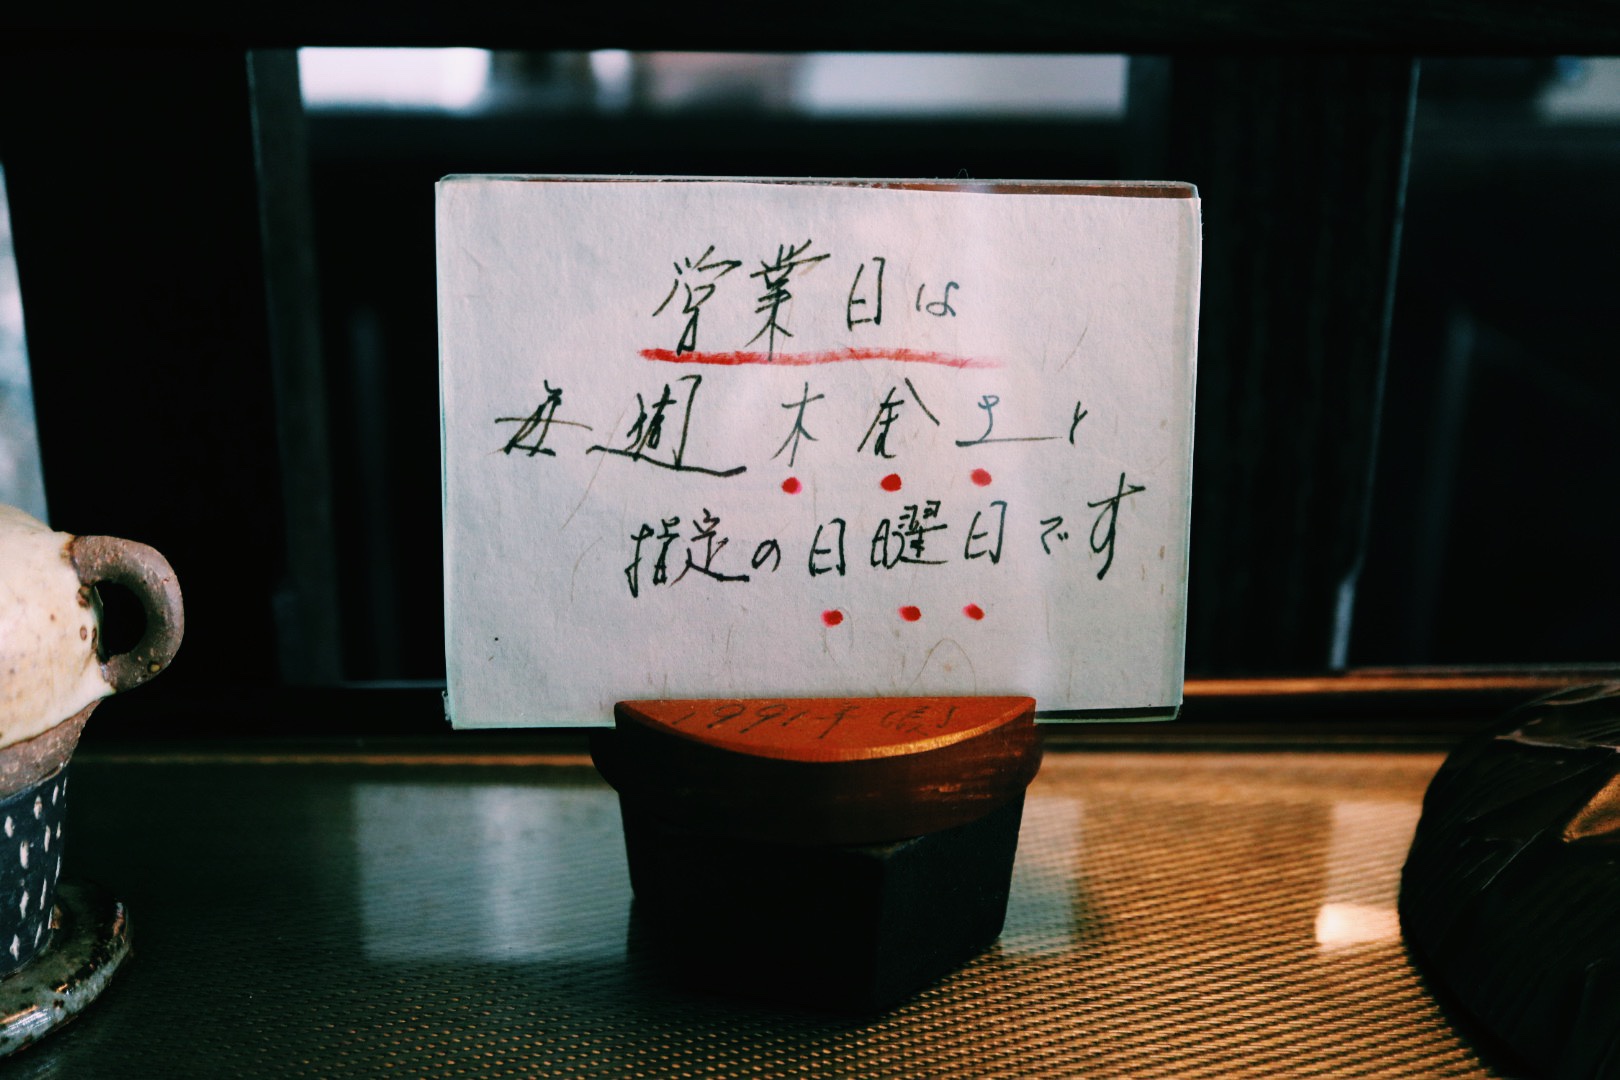 営業日は
毎週 木金土と
指定の日曜日です
1991年